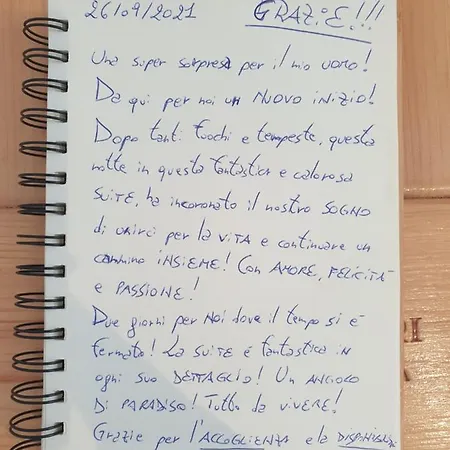 26/09/2021 GRAZIE!!!
Una super sorpresa per il mio uomo!
Da qui per noi un NUOVO INIZIO!
Dopo tanti fuochi e tempeste, questa
notte in questa fantastica e calorosa
SUITE, ha incoronato il nostro SOGNO
di unirci per la VITA e continuare un
cammino INSIEME! Con AMORE, FELICITÀ
e PASSIONE!
Due giorni per Noi dove il tempo si è
fermato! La SUITE è fantastica in
ogni suo DETTAGLIO! Un ANGOLO
DI PARADISO! Tutto da VIVERE!
Grazie per l'ACCOGLIENZA e la